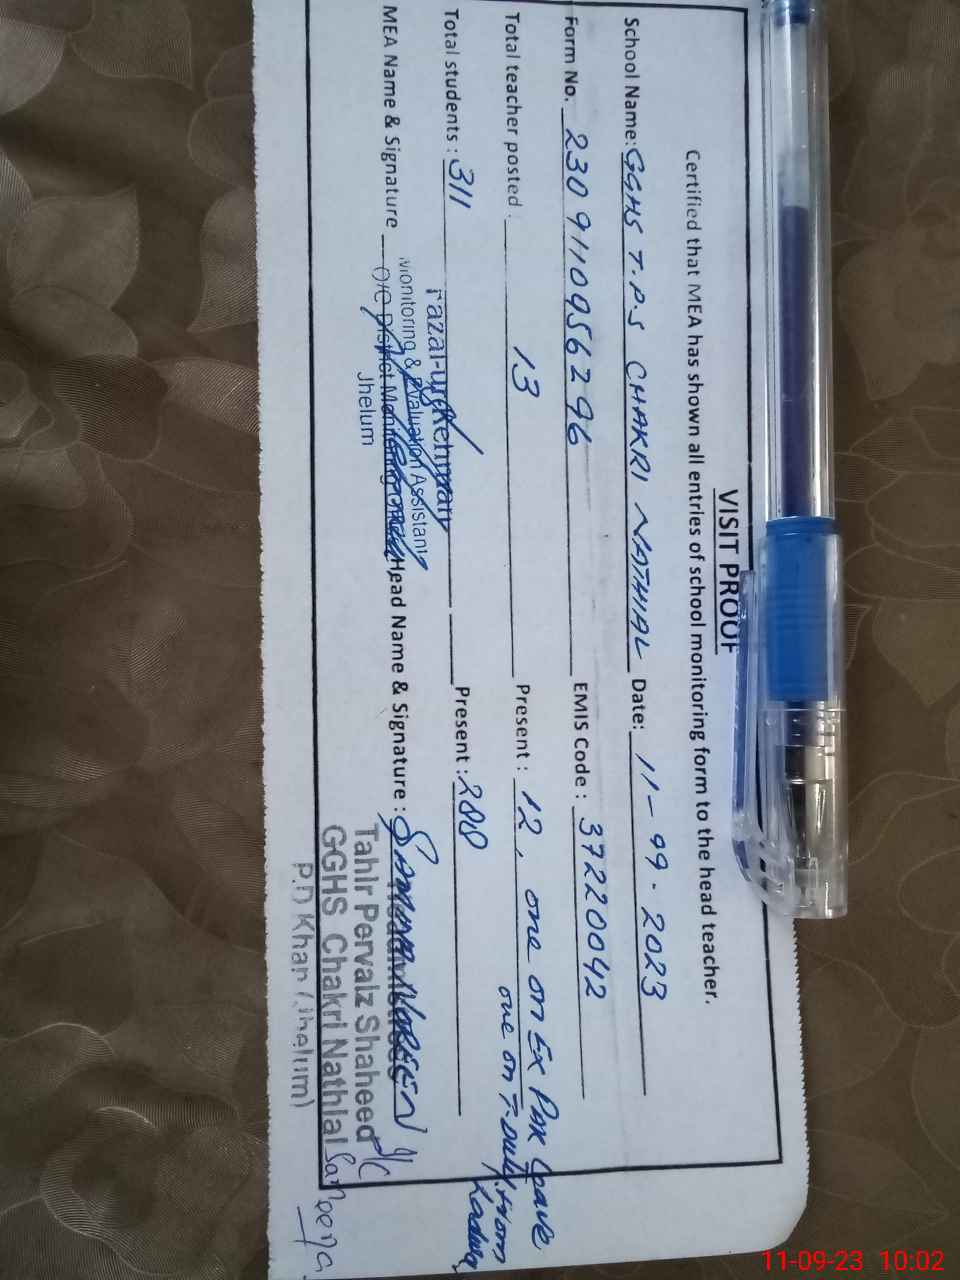 VISIT PROOF
Certified that MEA has shown all entries of school monitoring form to the head teacher.
School Name: GGHS T.P.S CHAKRI NATHIAL Date: 11-09.2023
Form No. 2309110956296 EMIS Code: 37220042
Total teacher posted 13 Present: 12, one on Ex Pak Leave
one on T. duty from
Total students: 311 Present: 288
MEA Name & Signature Head Name & Signature: SAMINA NOREEN I/C
Fazal-ur-Rehman
Monitoring & Evaluation Assistant
O/O District Monitoring
Jhelum
Headmistress
Tahir Pervaiz Shaheed
GGHS Chakri Nathial
P.D Khan (Jhelum)
11-09-23 10:02